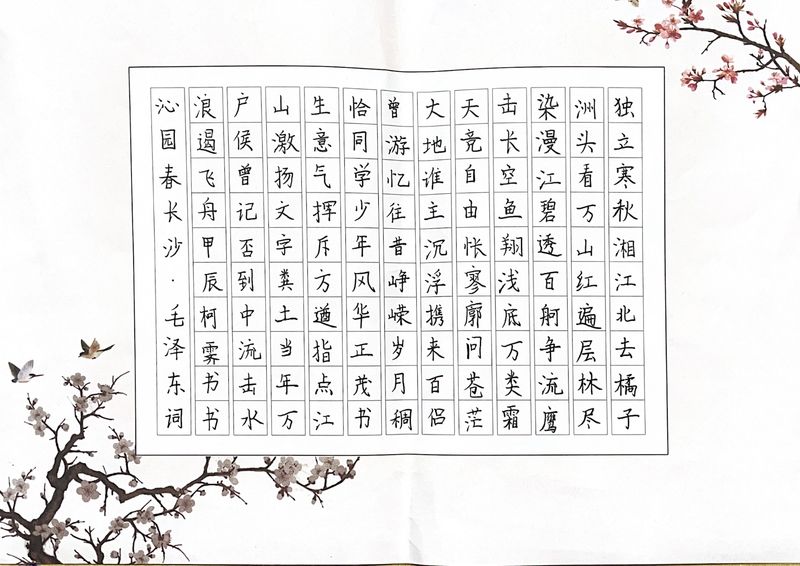 独立寒秋湘江北去橘子
洲头看万山红遍层林尽
染漫江碧透百舸争流鹰
击长空鱼翔浅底万类霜
天竞自由怅寥廓问苍茫
大地谁主沉浮携来百侣
曾游忆往昔峥嵘岁月稠
恰同学少年风华正茂书
生意气挥斥方遒指点江
山激扬文字粪土当年万
户侯曾记否到中流击水
浪遏飞舟甲辰柯霁书书
沁园春长沙·毛泽东词